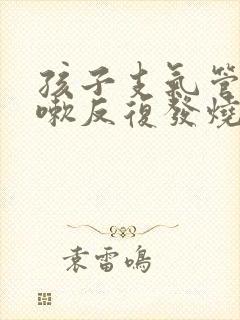 孩子支氣管
嗽反復發燒
袁雷鳴